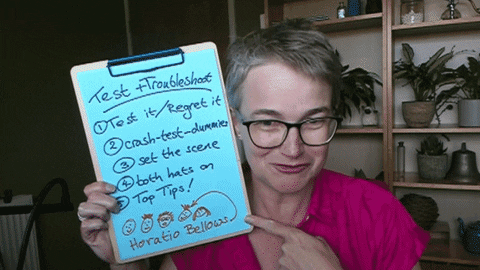 Test + Troubleshoot
① Test it / Regret it
② crash-test-dummies
③ set the scene
④ both hats on
⑤ Top Tips!
Horatio Bellows